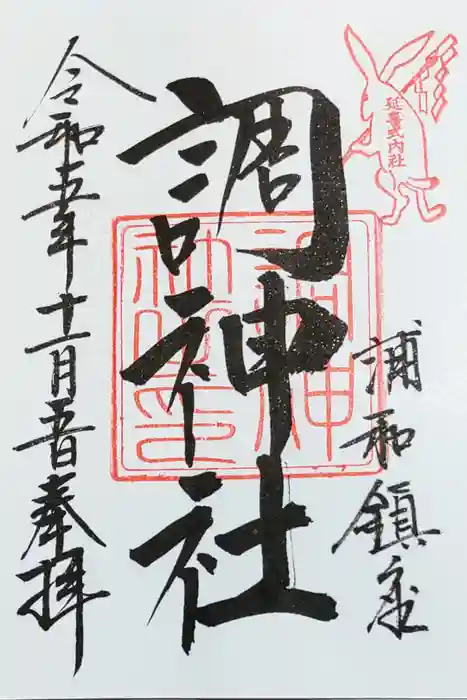 延喜式内社
浦和鎮座
調神社
令和五年十一月五日奉拝